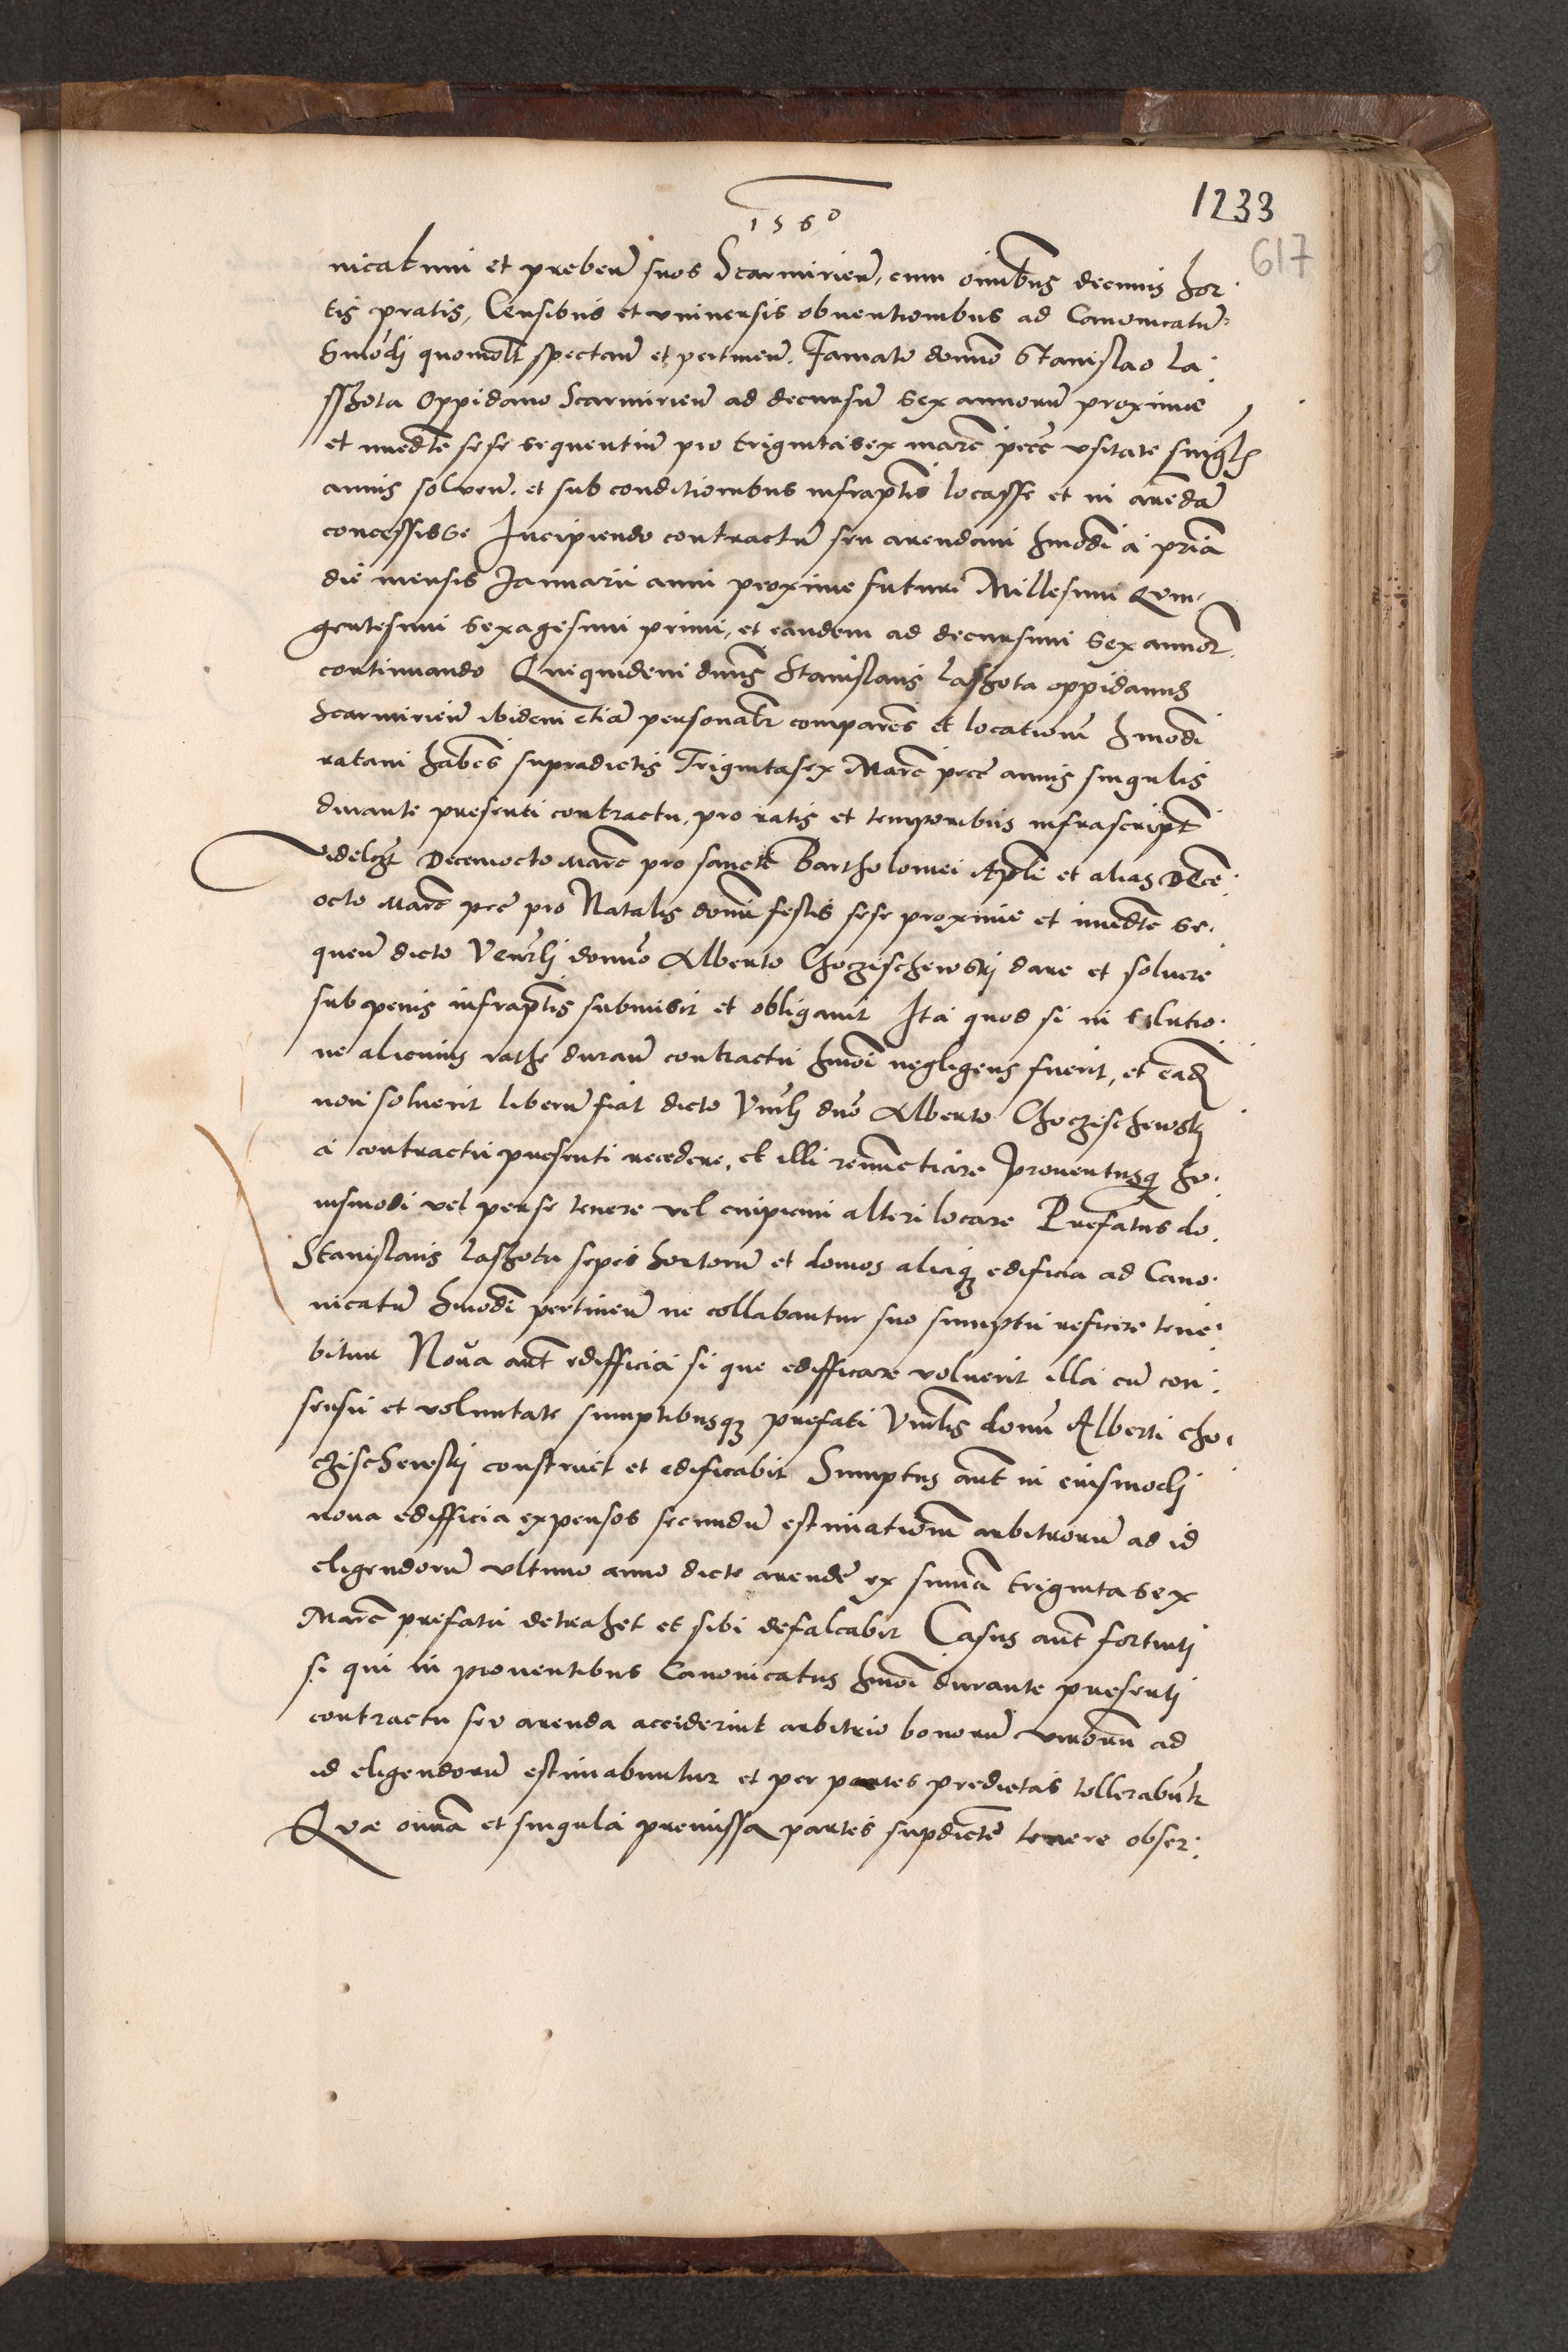 1560
1233
617
nicatum et prebeñ suos Scarmirieñ, cum oîmbus decimis hor
tis pratis, Censibus et vniuersis obuentionibus ad Canonicatũ
hmõdj quomõlt spectañ et pertineñ. Famato domño Stanislao la
sshota Oppidano Scarmirieñ ad decursũ sex annorũ proxime
et imedte sese sequentiũ pro trigintasex marc pecc vsitate singlis
annis solueñ. et sub conditionibus infraptis locasse et in arẽdã
concessisse Incipiendo contractũ seu arendam hmõdi a prĩa
die mensis Januarii anni proxime futuri Millesimi Quin
gentesimi sexagesimi primi, et eandem ad decursum sex annor
continuando Quiquidem dnus Stanislaus lashota oppidanus
Scarmirieñ ibidem etiã personalr comparẽs et locationẽ hmõdi
ratam habẽs supradictis Trigintasex Marc pecc annis singulis
durante presenti contractu, pro ratis et temporibus infrascript
videlczt Decemocto marc pro sancti Bartholomei Apli et alias Dece
octo marc pec pro Natalis domi festis sese proxime et imedte se
queñ dicto Venrlj domño Alberto Choczischewskj dare et soluere
sub penis infraptis submisit et obligauit Ita quod si in solutio
ne alicuius rathe durañ contractu hmõi negligens fuerit, et eãd
non soluerit liberũ fiat dicto Vnrlj dño Alberto Choczischewskj
a contractu presenti recedere, et illi renunctiare prouentusq hu
iusmodi vel per se tenere vel cuipiam alteri locare Prefatus do
Stanislaus lashota sepes hortorũ et domos aliaq edificia ad Cano
nicatũ hmõdi pertineñ ne collabantur suo sumptu reficere tene
bitur Noua aut edifficia si que edifficare voluerit illa cũ con
sensu et voluntate sumptibusq prefati Vnrlis domi Alberti Cho
czischewskj construet et edificabit Sumptus aut in eiusmodj
noua edifficia expensos secundũ estimationẽ arbitrorũ ad id
eligendorũ vltimo anno dicte arende ex sũma triginta sex
Marc prefatũ detrahet et sibi defalcabit Casus aut fortuitj
si qui in prouentibus Canonicatus hmõi durante presentj
contractu seu arenda acciderint arbitrio bonorũ virorũ ad
id eligendorũ estimabuntur et per partes predictas tollerabũtr
Quæ omnia et singula premissa partes supdictẽ tenere obser